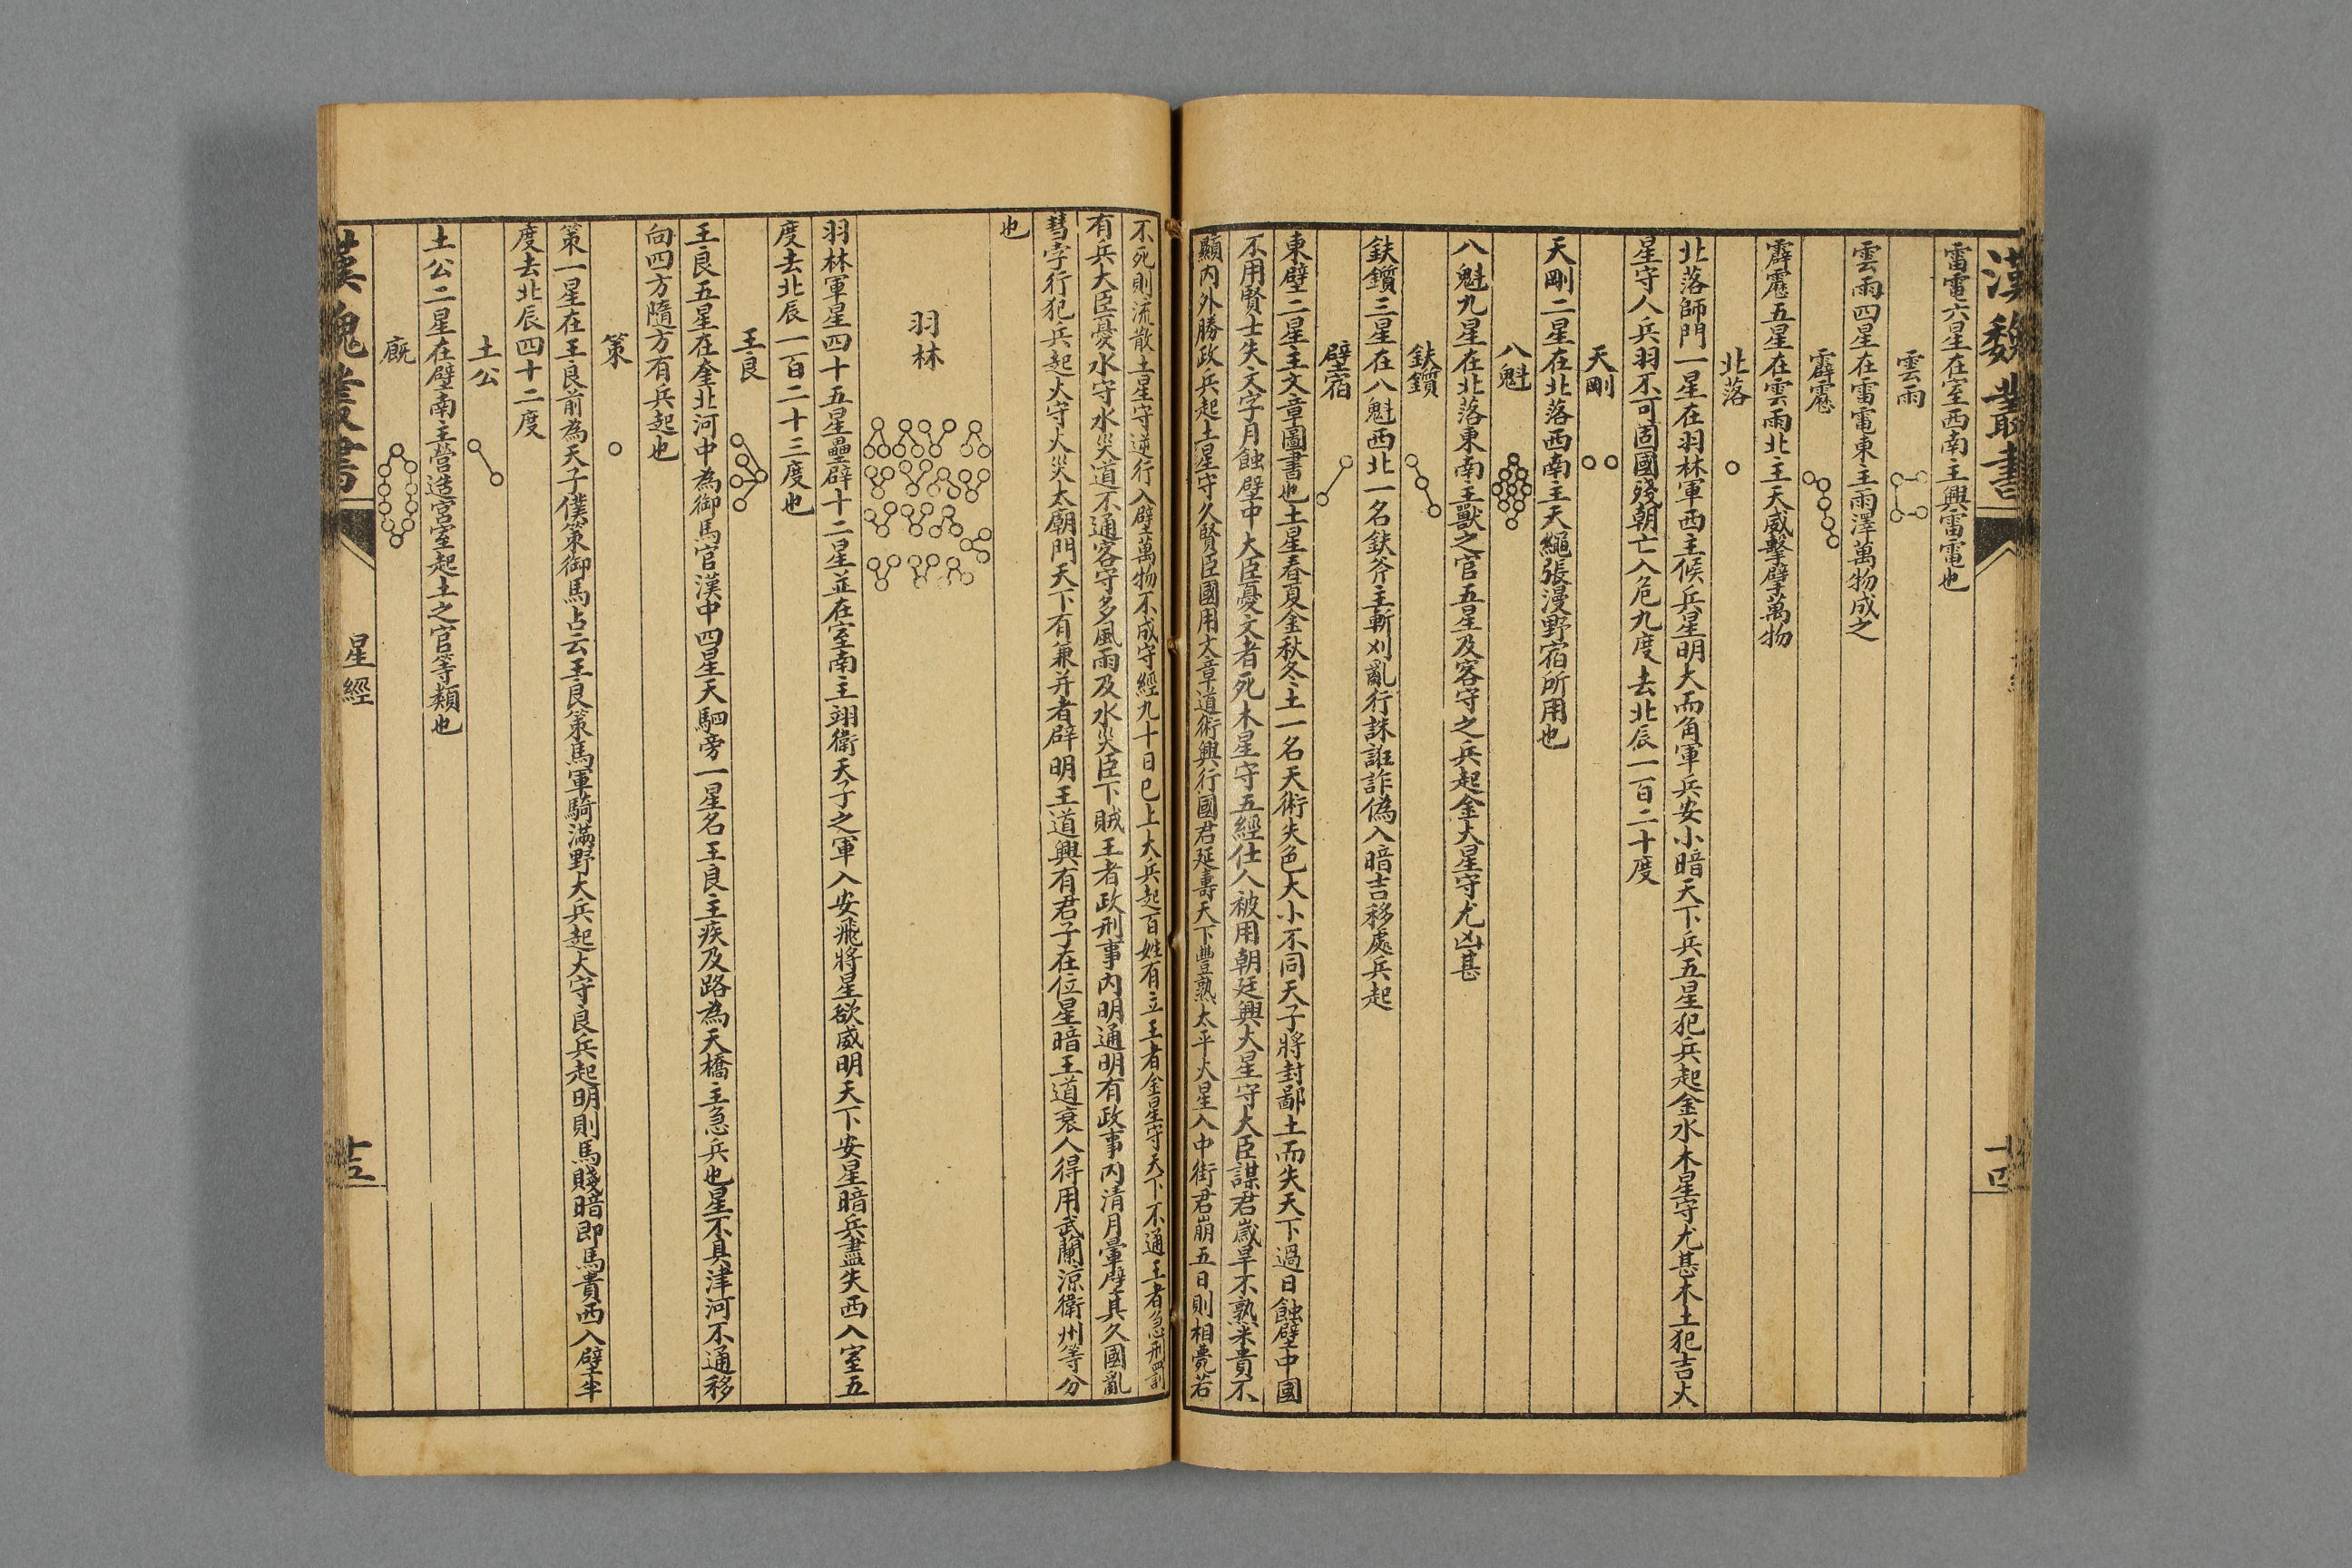 漢魏叢書
雷電六星在室西南主興雷電也
雲雨
雲雨四星在雷電東主雨澤萬物成之
霹靂
霹靂五星在雲雨北主天威擊擘萬物
北落
北落師門一星在羽林軍西主候兵星明大而角軍兵安小暗天下兵五星犯兵起金水木星守尤甚木土犯吉火
星守人兵羽不可固國殘朝亡入危九度去北辰一百二十度
天剛
天剛二星在北落西南主天繩張漫野宿所用也
八魁
八魁九星在北落東南主獸之官五星及客守之兵起金火星守尤凶甚
鈇鑕
鈇鑕三星在八魁西北一名鈇斧主斬刈亂行誅誑詐偽入暗吉移處兵起
壁宿
東壁二星主文章圖書也土星春夏金秋冬土一名天術失色大小不同天子將封鄙土而失天下過日蝕壁中國
不用賢士失文字月蝕壁中大臣憂文者死木星守五經仕人被用朝廷興火星守大臣謀君歲旱不熟米貴不
顯內外勝政兵起土星守久賢臣國用文章道術興行國君延壽天下豐熟太平火星入中街君崩五日則相喪若
不死則流散土星守逆行入壁萬物不成守經九十日已上大兵起百姓有立王者金星守天下不通王者急刑罰
有兵大臣憂水守水災道不通客守多風雨及水災臣下賊王者政刑事內明通明有政事內清月暈壁其久國亂
彗孛行犯兵起火守火災太廟門天下有兼并者辟明王道興有君子在位星暗王道衰人得用武蘭涼衛州等分
也
羽林
羽林軍星四十五星壘辟十二星並在室南主翊衛天子之軍入安飛將星欲威明天下安星暗兵盡失西入室五
度去北辰一百二十三度也
王良
王良五星在奎北河中為御馬官漢中四星天駟旁一星名王良主疾及路為天橋主急兵也星不具津河不通移
向四方隨方有兵起也
策
策一星在王良前為天子僕策御馬占云王良策馬軍騎滿野大兵起火守良兵起明則馬賤暗即馬貴西入壁半
度去北辰四十二度
土公
土公二星在壁南主營造宮室起土之官等類也
廐
漢魏叢書
星經